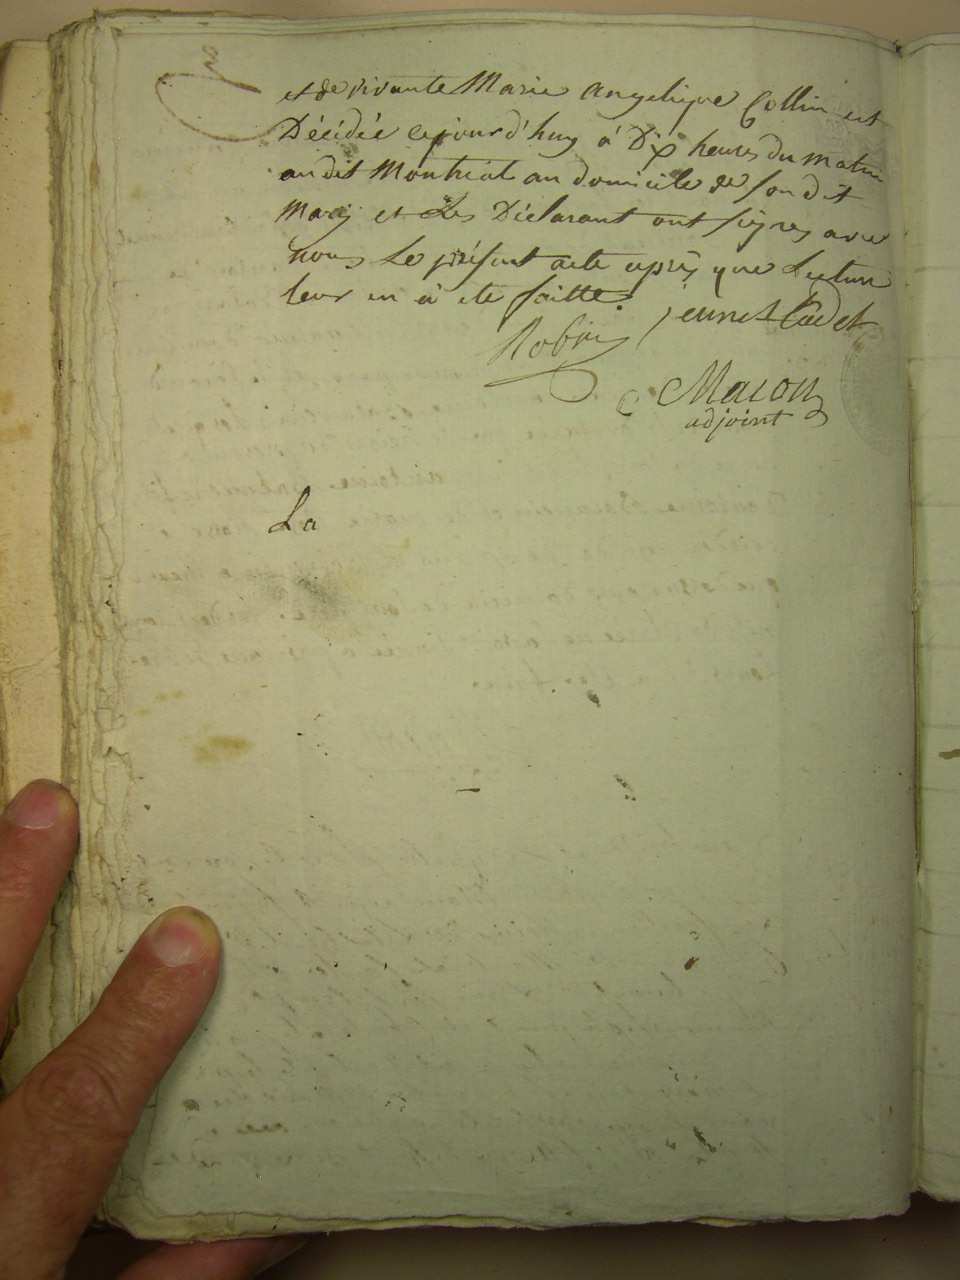 et de vivante Marie Angelique Collin est
Décidée cejourd'huy à Dix heures du matin
au dit Montréal au domicile de son dit
Mary et Les Déclarant ont signes avec
nous Le présent acte après que Lecture
leur en à ete faitte.
jeunet Cadet
Robin
C Macon
adjoint
La